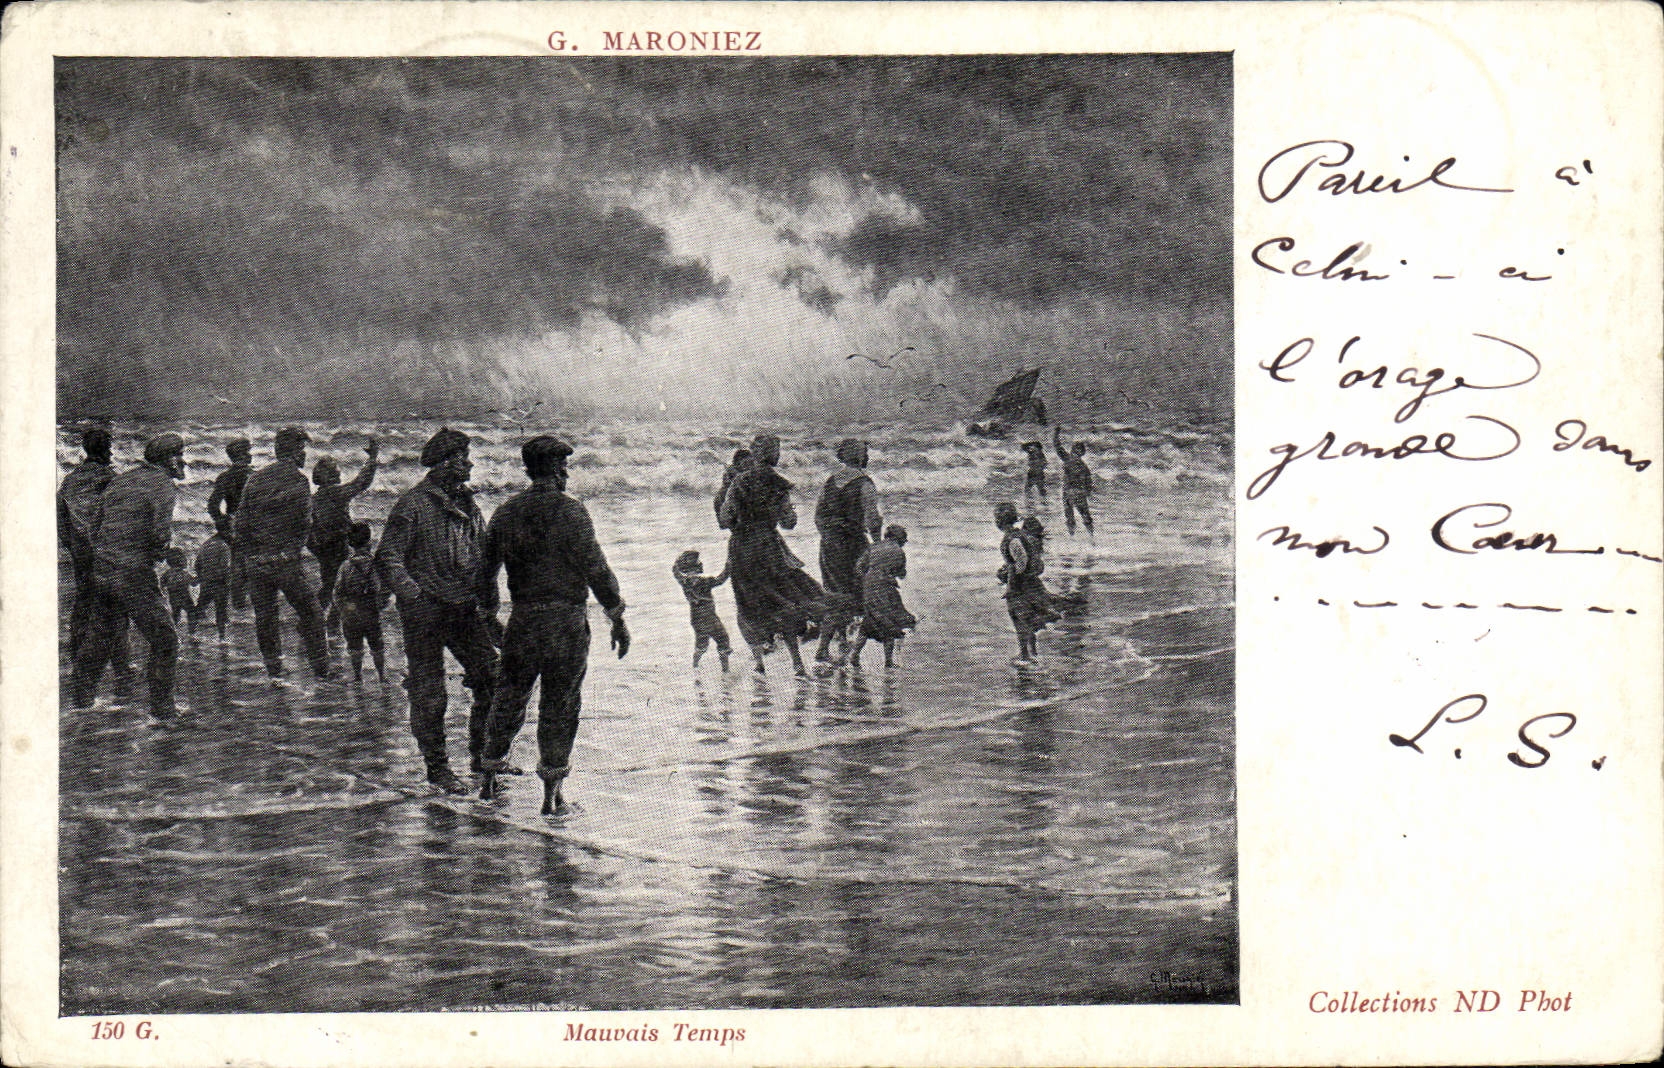 G. MARONIEZ
Pareil à
Celui-ci
l'orage
gronde dans
mon Cœur...
L. S.
G. Maroniez
Collections ND Phot
150 G.
Mauvais Temps